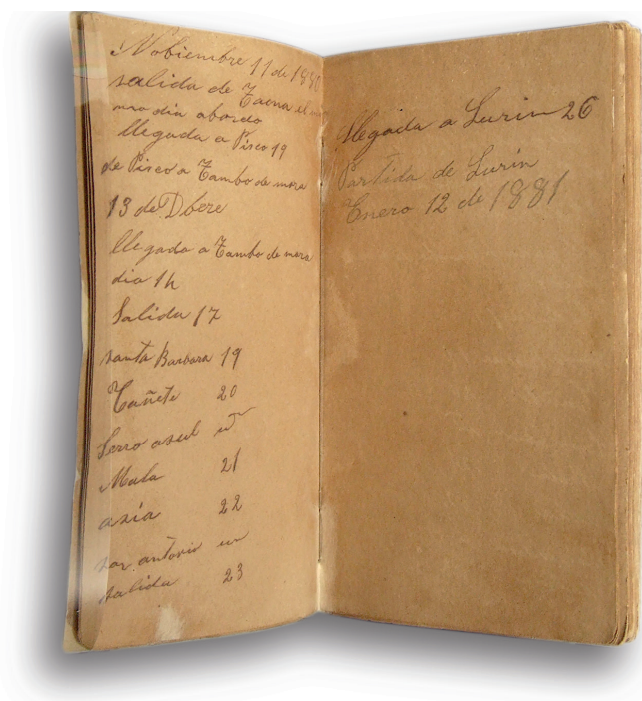 Nobiembre 11 de 1880
salida de Tacna el mis
mo dia abordo
llegada a Pisco 19
de Pisco a Tambo de mora
13 de Dbere
llegada a Tambo de mora
dia 14
Salida 17
santa Barbara 19
Cañete 20
Serro asul
Mala 21
asia 22
san antonio
salida 23
llegada a Lurin 26
Partida de Lurin
Enero 12 de 1881